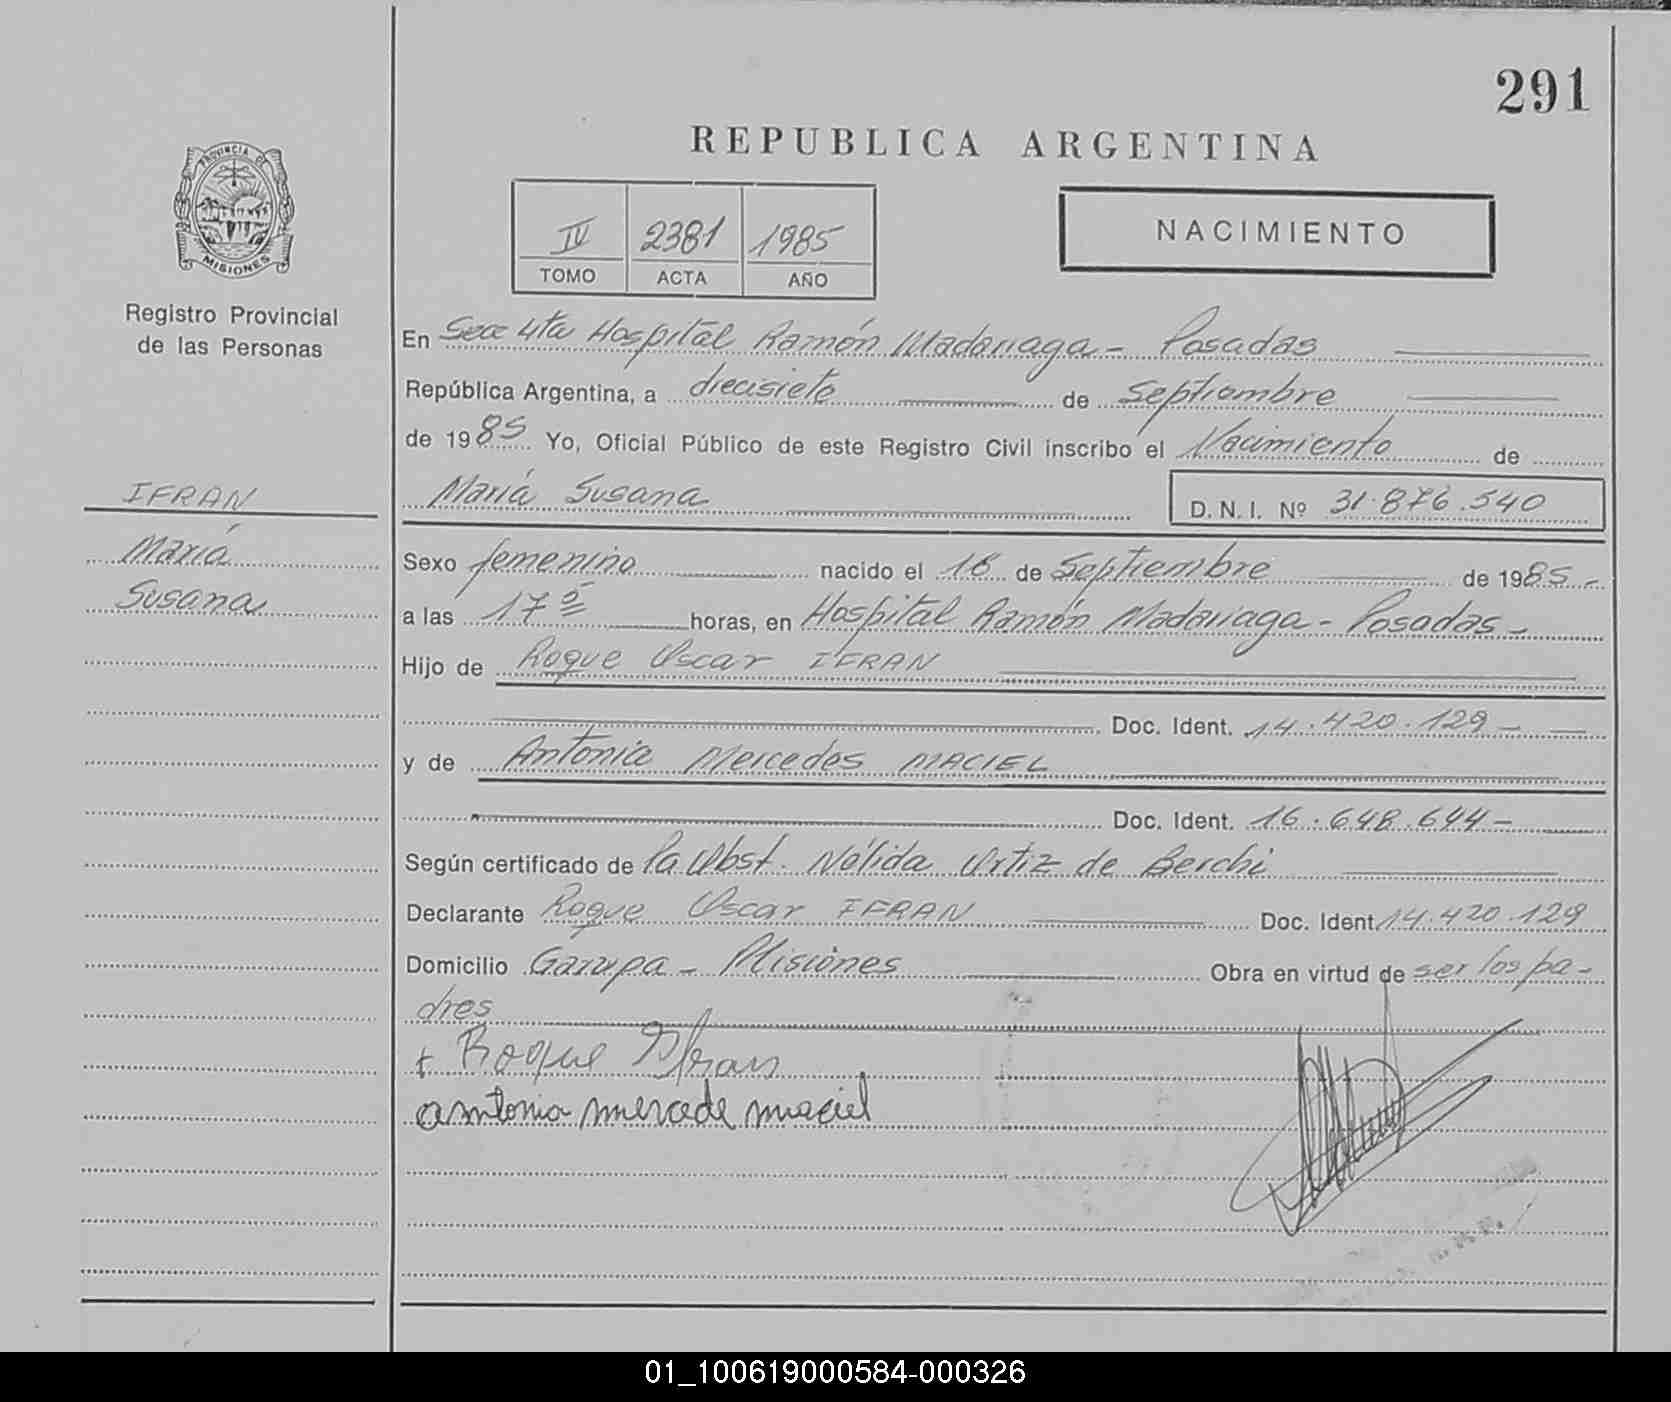 291
REPUBLICA ARGENTINA
PROVINCIA DE
MISIONES
Registro Provincial
de las Personas
IV 2381 1985
TOMO ACTA AÑO
NACIMIENTO
En Secc 4ta Hospital Ramón Madariaga - Posadas
República Argentina, a diecisiete de Septiembre
de 1985 Yo, Oficial Público de este Registro Civil inscribo el Nacimiento de
María Susana D. N. I. Nº 31.876.540
IFRAN
María
Susana
Sexo femenino nacido el 16 de Septiembre de 1985-
a las 17 º horas, en Hospital Ramón Madariaga - Posadas -
Hijo de Roque Oscar IFRAN
Doc. Ident. 14.420.129 -
y de Antonia Mercedes MACIEL
Doc. Ident. 16.648.644 -
Según certificado de la Obst. Nélida Ortiz de Berchi
Declarante Roque Oscar IFRAN Doc. Ident. 14.420.129
Domicilio Garupa - Misiones Obra en virtud de ser los pa-
dres
+ Roque Ifran
antonia mercede maciel
01_100619000584-000326